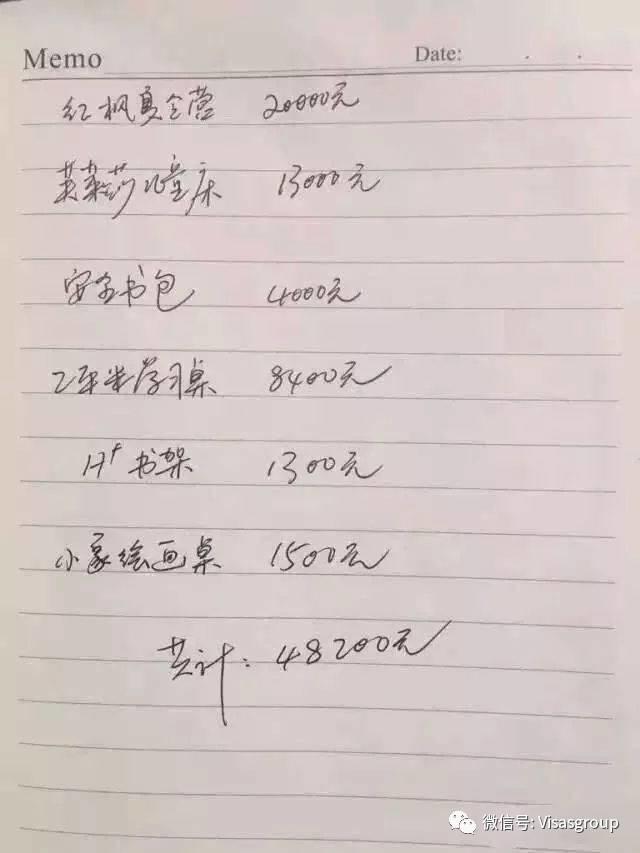 Memo Date: . .
红枫夏令营 20000元
芙莱莎儿童床 13000元
安全书包 4000元
2平米学习桌 8400元
H+书架 1300元
小象绘画桌 1500元
共计: 48200元
微信号: Visasgroup